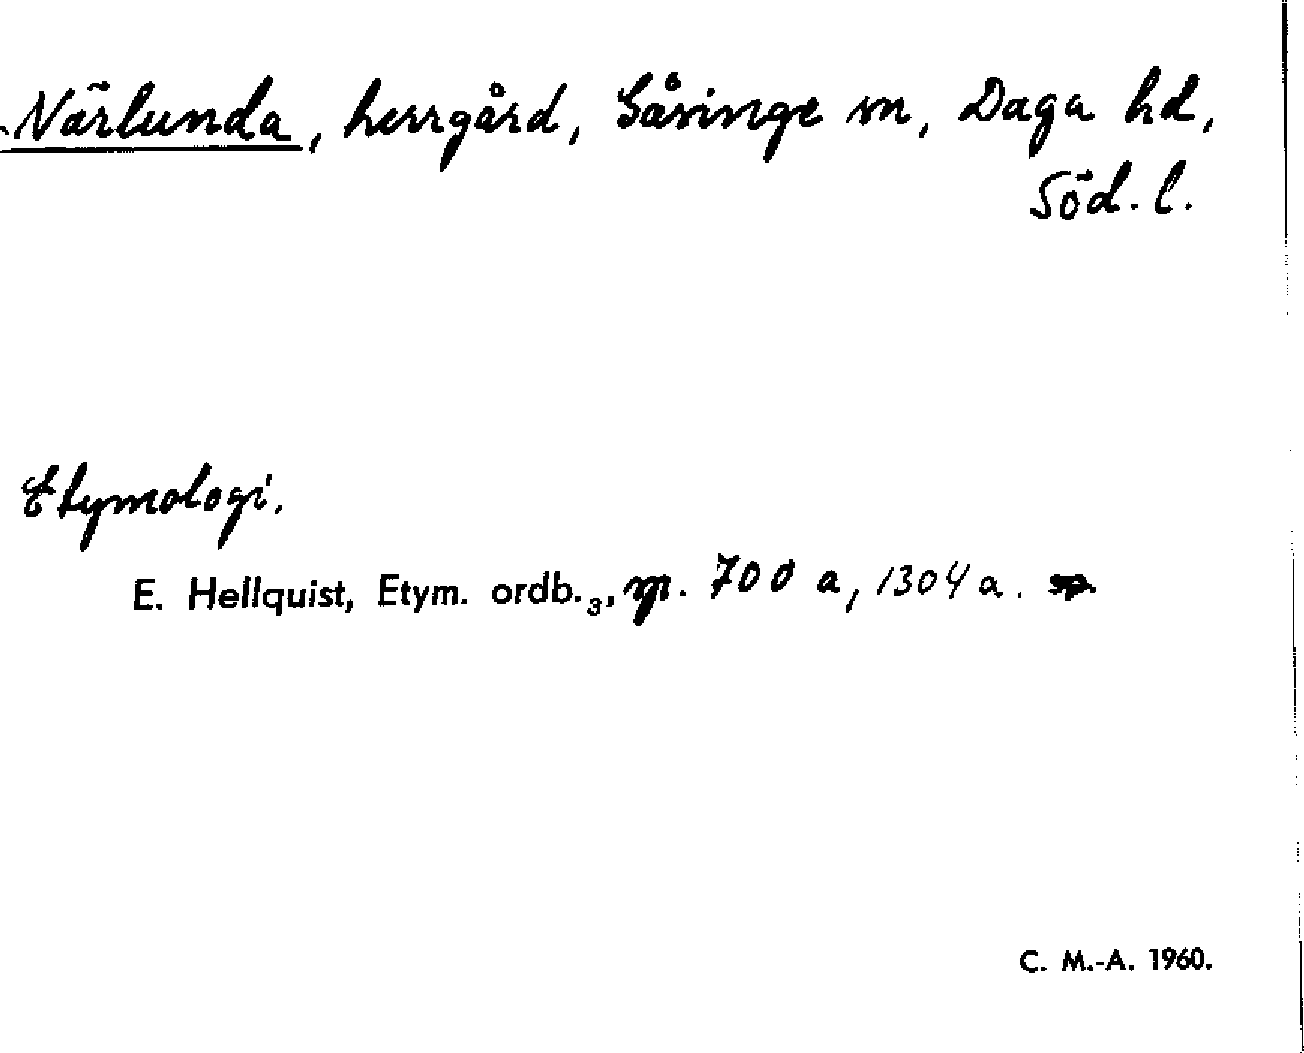 Närlunda, herrgård, Gåsinge sn, Daga hd,
Söd. l.
Etymologi.
E. Hellquist, Etym. ordb.₃, p. 700 a, 1304 a.
C. M.-A. 1960.